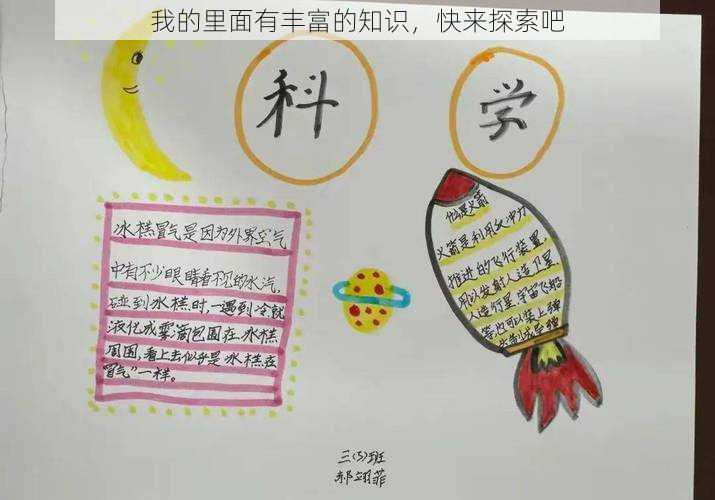 我的里面有丰富的知识，快来探索吧
科
学
冰糕冒气是因为外界空气
中有不少眼睛看不见的水汽，
碰到冰糕时，一遇到冷就
液化成雾滴包围在冰糕
周围，看上去似乎是冰糕在
"冒气"一样。
火箭是利用反冲力
推进的飞行装置，
用以发射人造卫星、
人造行星、宇宙飞船
等，也可以装上弹
头制成导弹
三(5)班